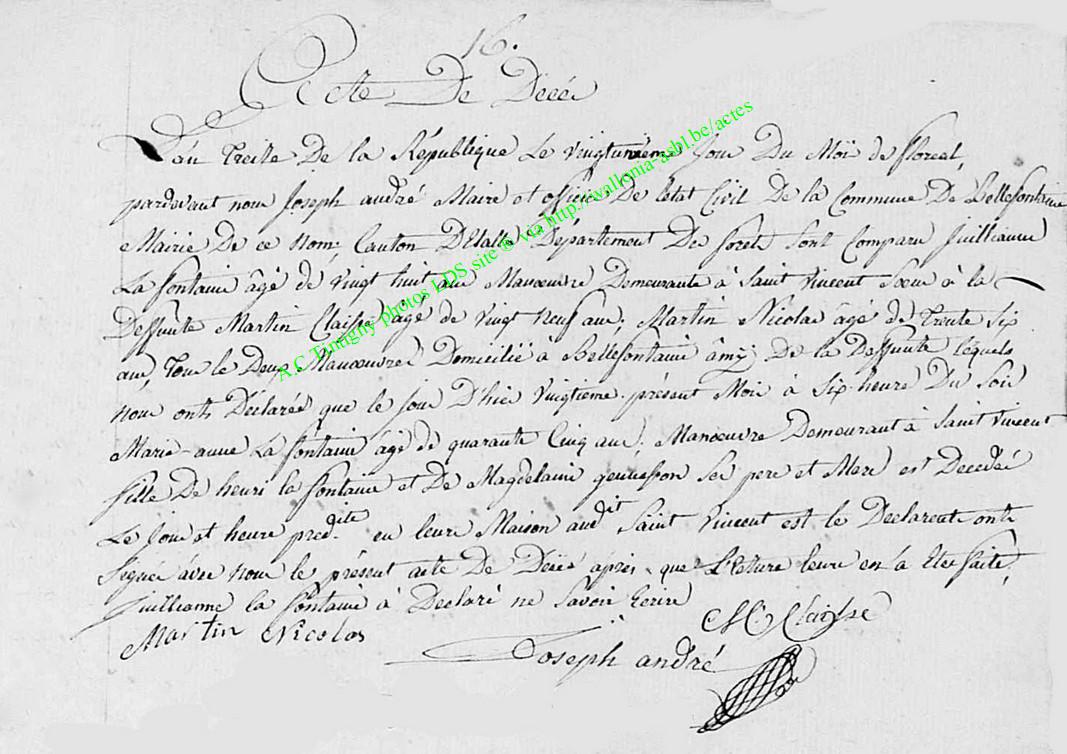 16.
Acte De Décé
L'an Treize De la République Le vingtunieme Jour Du Moi de floreal,
pardevant nous Joseph andré Maire et officier De L'etat Civil De la Commune De Bellefontaine
Mairie De ce Nom, Canton D'Etalle Département De foret sont Comparu Juillianne
La fontaine âgé de vingt huit ans Manoeuvre Demeurante à Saint Vincent Soeur à la
Deffunte Martin Claisse âgé de vingt Neuf ans, Martin Nicolas âgé de Trente Six
ans, Tous le Deux Manoeuvre Domicilié à Bellefontaine âmij De la Deffunte lequels
Nous onts Déclarée que le Jour D'hier Vingtieme présent Moi à Six heure Du Soir
Marie-anne La fontaine âgé de quarante Cinq ans, Manoeuvre Demeurant à Saint Vincent
fille De henri la fontaine et De Magdelaine Ses pere et Mere est Decedée
Le Jour et heure pred.dite en leure Maison audit Saint Vincent est le Declarents onts
Signée avec nous le présent acte De Décés après que L'ecture leure en à Eté faite,
Juillianne la fontaine à Declaré ne Savoir Ecrire
Martin Nicolas
M. Claisse
Joseph andré
A.C Tintigny photos LDS site ® via http://wallonia-asbl.be/actes